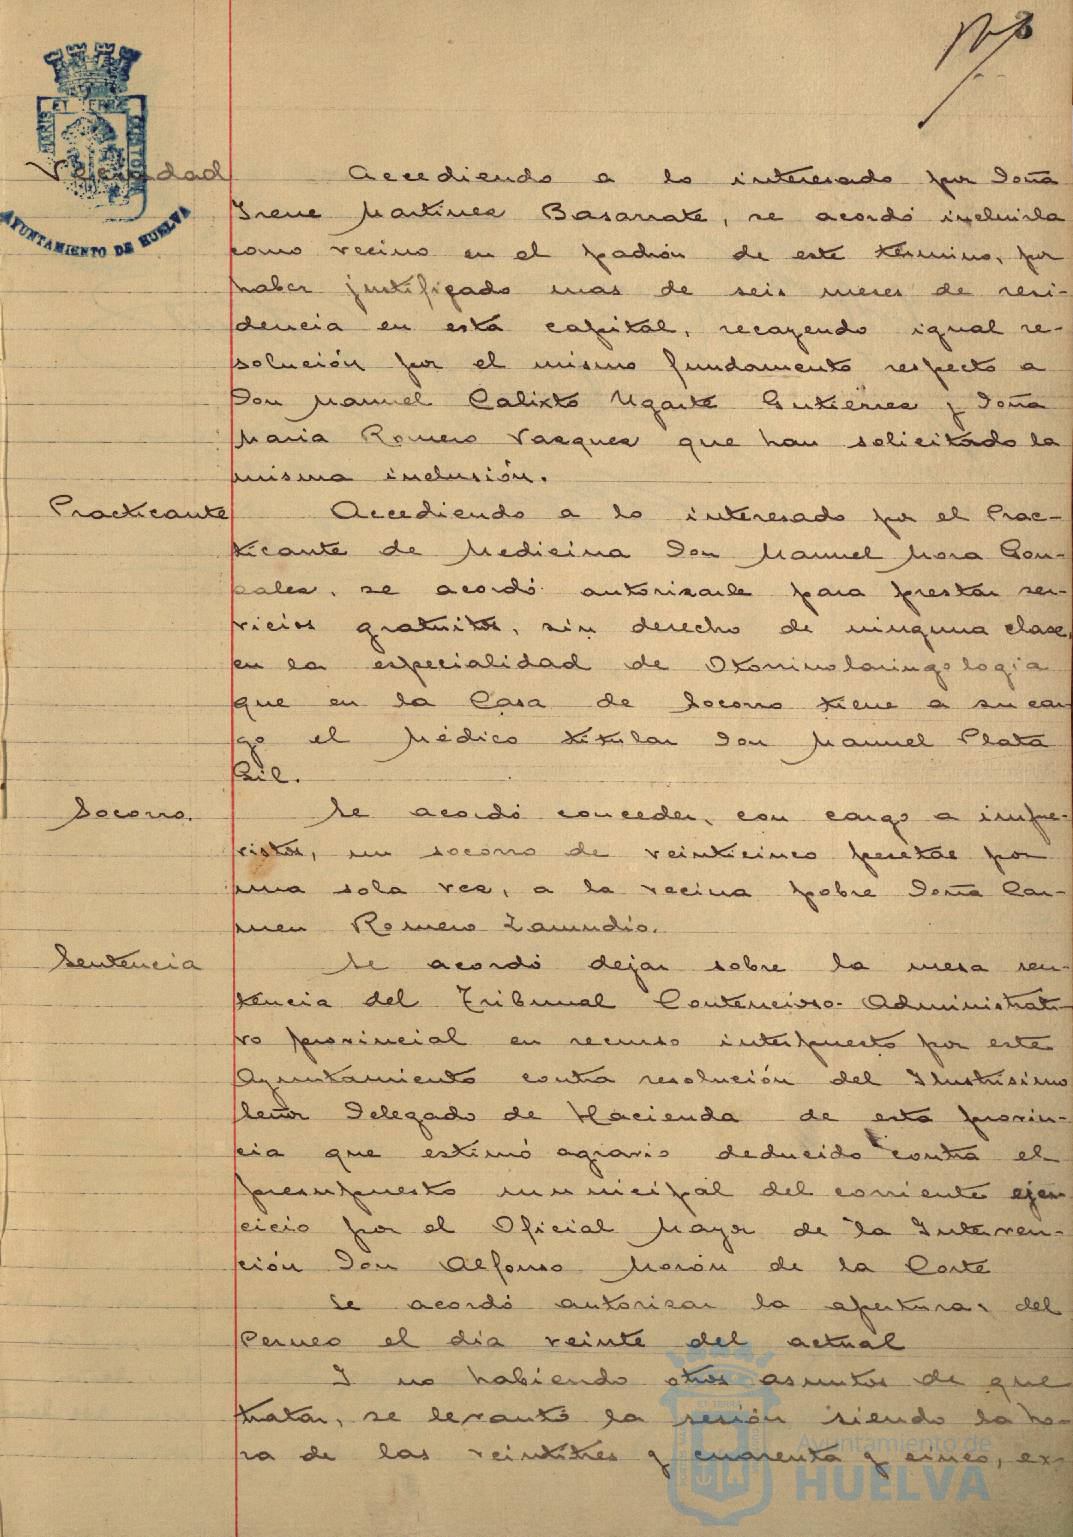 MARIS ET TERRE CUSTODIA
AYUNTAMIENTO DE HUELVA
Vecindad
Accediendo a lo interesado por Doña
Irene Martinez Basarrate, se acordó incluirla
como vecino en el padrón de este término, por
haber justificado mas de seis meses de resi-
dencia en esta capital, recayendo igual re-
solución por el mismo fundamento respecto a
Don Manuel Calixto Ugarte Gutierrez y Doña
Maria Romero Vazquez que han solicitado la
misma inclusión.
Practicante
Accediendo a lo interesado por el Prac-
ticante de Medicina Don Manuel Mora Gon-
zalez, se acordó autorizarle para prestar ser-
vicios gratuitos, sin derecho de ninguna clase,
en la especialidad de Otorrinolaringologia
que en la Casa de Socorro tiene a su car-
go el Médico titular Don Manuel Plata
Gil.
Socorro.
Se acordó conceder, con cargo a impre-
vistos, un socorro de veinticinco pesetas por
una sola vez, a la vecina pobre Doña Car-
men Romero Zamudio.
Sentencia
Se acordó dejar sobre la mesa sen-
tencia del Tribunal Contencioso-Administrati-
vo provincial en recurso interpuesto por este
Ayuntamiento contra resolución del Ilustrisimo
Señor Delegado de Hacienda de esta provin-
cia que estimó agravio deducido contra el
presupuesto municipal del corriente ejer-
cicio por el Oficial Mayor de la Interven-
ción Don Alfonso Morón de la Corte
Se acordó autorizar la apertura del
Perneo el dia veinte del actual
Y no habiendo otros asuntos de que
tratar, se levantó la sesión siendo la ho-
ra de las veintitres y cuarenta y cinco, ex-
Ayuntamiento de
HUELVA